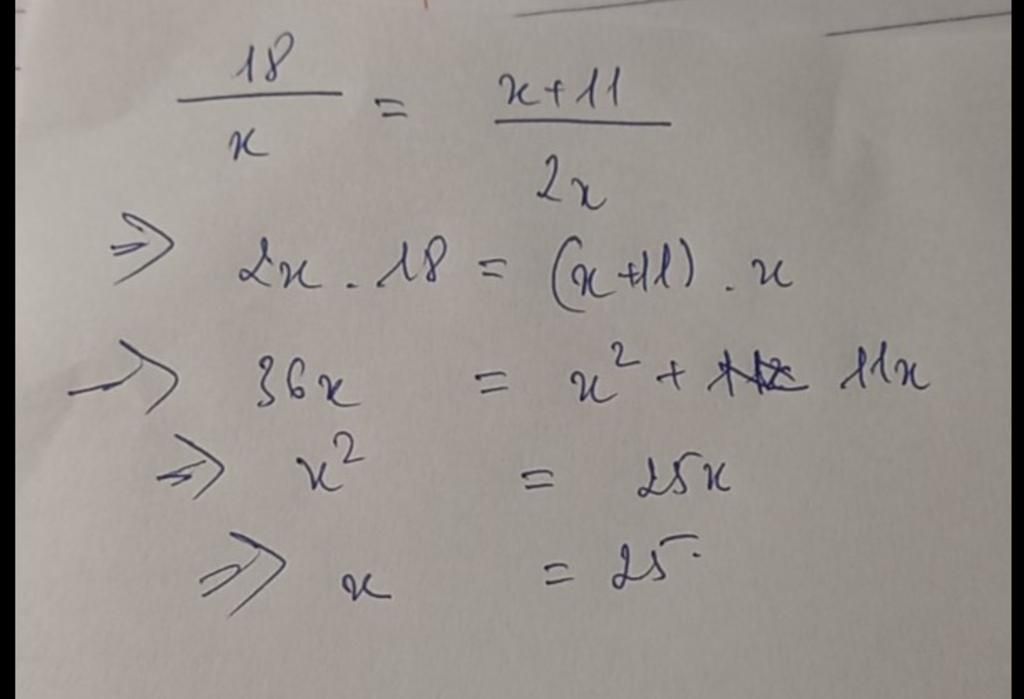 18/x = x+11/2x
⇒ 2x . 18 = (x+11) . x
→ 36x = x² + 11x
⇒ x² = 25x
⇒ x = 25